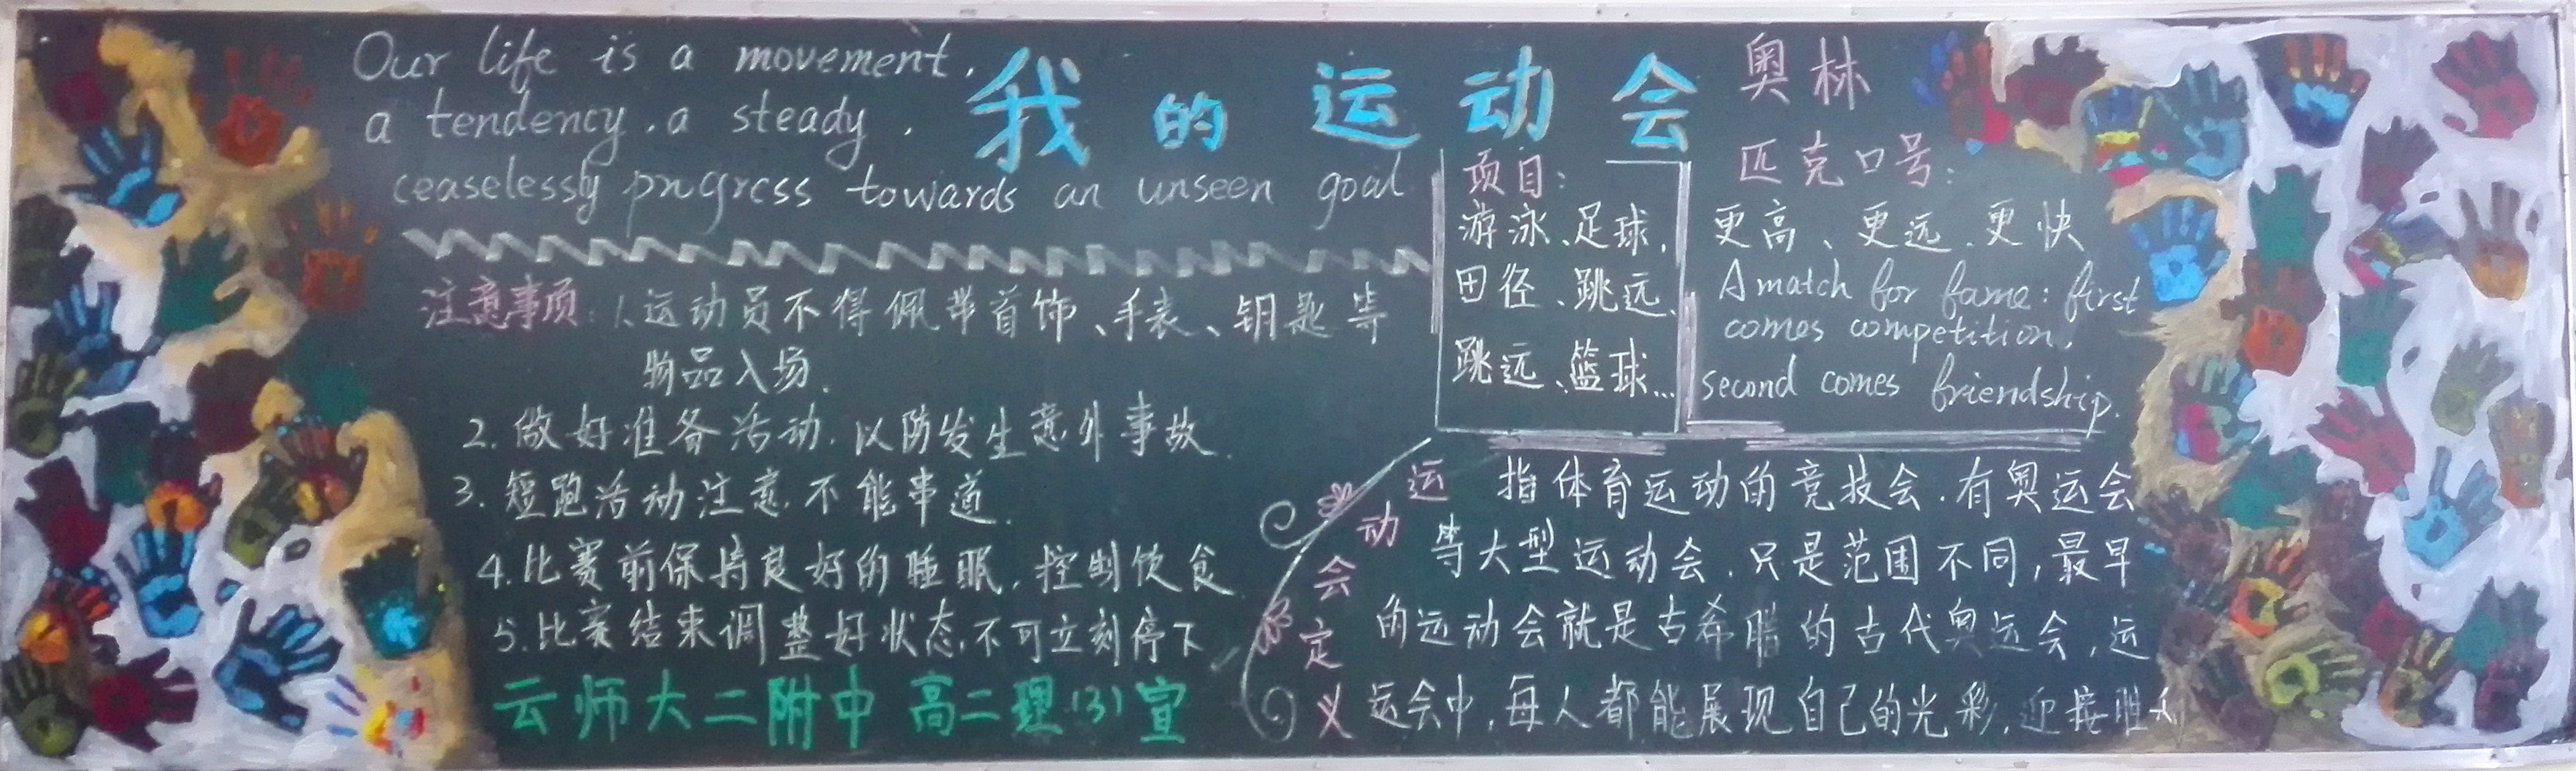 Our life is a movement,
a tendency, a steady,
ceaselessly progress towards an unseen goal
我的运动会
注意事项:1.运动员不得佩带首饰、手表、钥匙等
物品入场.
2.做好准备活动,以防发生意外事故.
3.短跑活动注意不能串道.
4.比赛前保持良好的睡眠,控制饮食
5.比赛结束调整好状态,不可立刻停下
云师大二附中 高二理(3)宣
项目:
游泳、足球,
田径、跳远、
跳远、篮球...
奥林
匹克口号:
更高、更远、更快
A match for fame: first
comes competition,
second comes friendship.
运动会定义
指体育运动的竞技会.有奥运会
等大型运动会,只是范围不同,最早
的运动会就是古希腊的古代奥运会,运
运会中,每人都能展现自己的光彩,迎接胜利